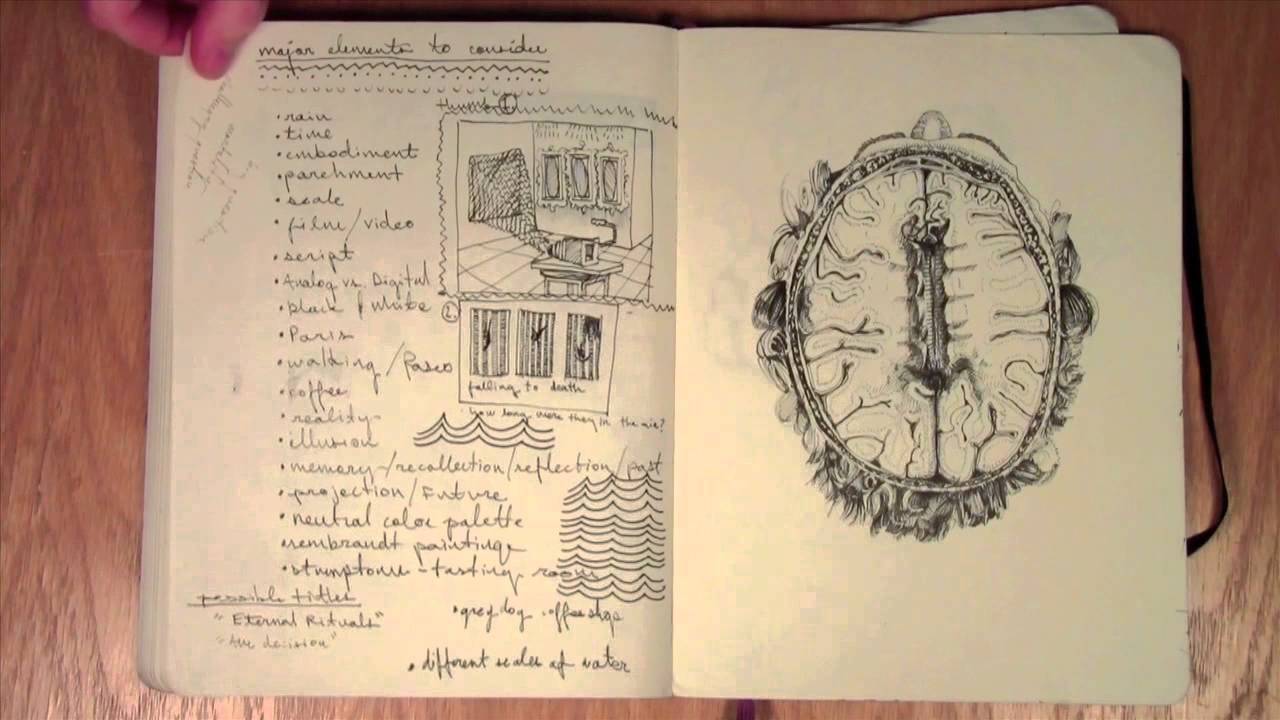 major elements to consider
• rain
• time
• embodiment
• parchment
• scale
• film/video
• script
• Analog vs. Digital
• black & white
• Paris
• walking/paseo
• coffee
• reality
• illusion
• memory/recollection/reflection/past
• projection/Future
• neutral color palette
• rembrandt paintings
• stumptown - tasting room
• grey dog coffee shop
• different scales of water
possible titles
"Eternal Rituals"
"the decision"
1
2.
falling to death
• how long were they in the air?